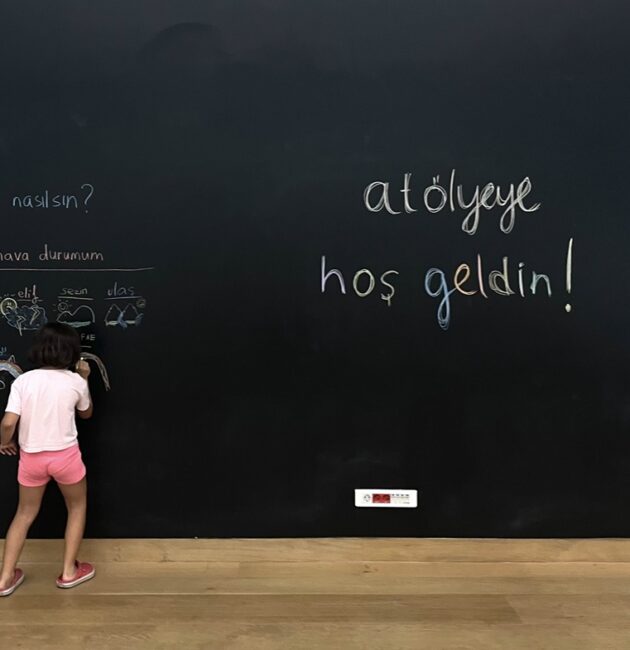 nasılsın?
hava durumum
elif
sezin
ulaş
atölyeye
hoş geldin!